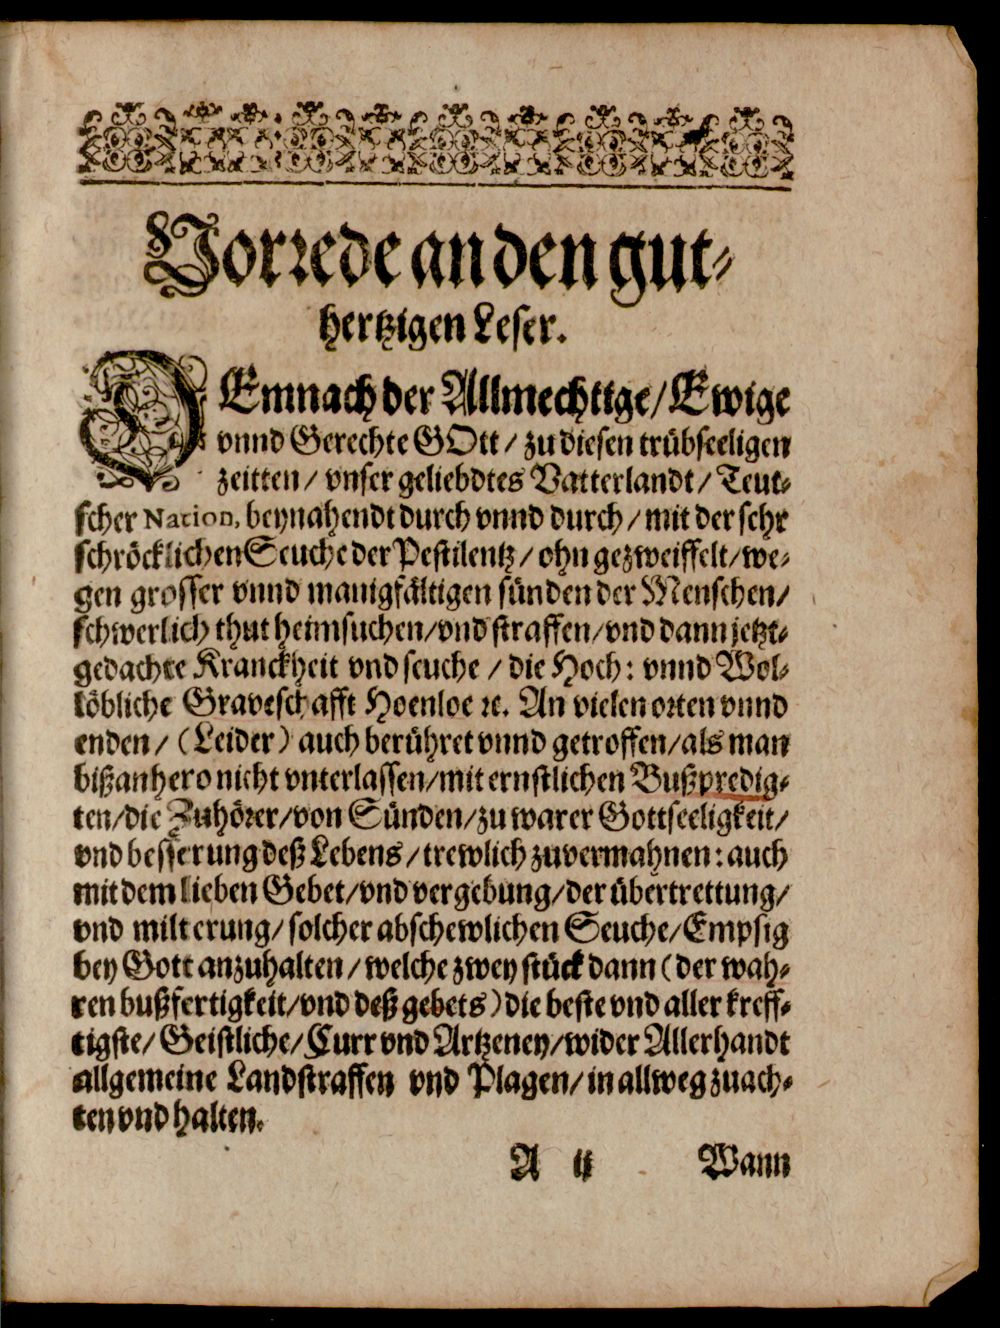 Vorrede an den gut-
hertzigen Leser.
DEmnach der Allmechtige/ Ewige
vnnd Gerechte GOtt / zu diesen trübseeligen
zeitten / vnser geliebdtes Vatterlandt / Teut-
scher Nation, beynahendt durch vnnd durch / mit der sehr
schröcklichen Seuche der Pestilentz / ohn gezweiffelt/ we-
gen grosser vnnd manigfältigen sünden der Menschen/
schwerlich thut heimsuchen/ vnd straffen/ vnd dann jetzt-
gedachte Kranckheit vnd seuche / die Hoch: vnnd Wol-
löbliche Graveschafft Hoenloe ꝛc. An vielen orten vnnd
enden / (Leider) auch berühret vnnd getroffen/ als man
bißanhero nicht vnterlassen/ mit ernstlichen Bußpredig-
ten/ die Zuhörer/ von Sünden/ zu warer Gottseeligkeit/
vnd besserung deß Lebens / trewlich zuvermahnen: auch
mit dem lieben Gebet/ vnd vergebung/ der übertrettung/
vnd milterung/ solcher abschewlichen Seuche/ Empsig
bey Gott anzuhalten / welche zwey stück dann (der wah-
ren bußfertigkeit/ vnd deß gebets) die beste vnd aller kreff-
tigste/ Geistliche/ Curr vnd Artzeney/ wider Allerhandt
allgemeine Landstraffen vnd Plagen/ in allweg zuach-
ten vnd halten.
A ij Wann